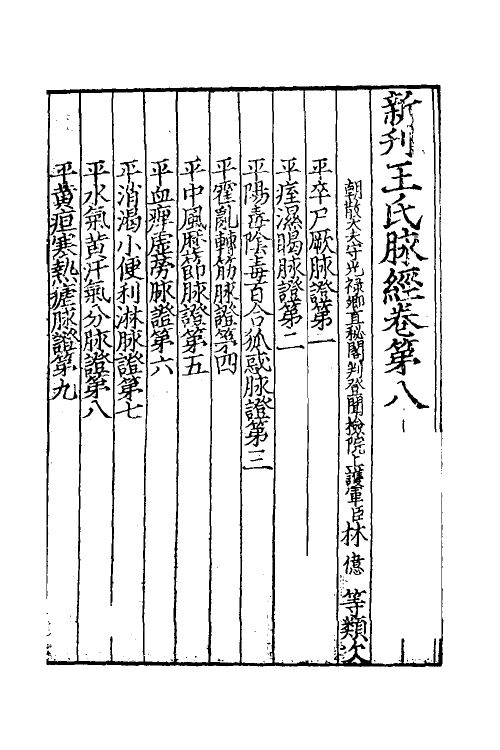 新刋王氏脉經卷第八
朝散大夫守光祿卿直秘閣判登聞檢院上護軍臣林億等類次
平卒尸厥脉證第一
平痓濕暍脉證第二
平陽毒陰毒百合狐惑脉證第三
平霍亂轉筋脉證第四
平中風歴節脉證第五
平血痺虛勞脉證第六
平消渴小便利淋脉證第七
平水氣黄汗氣分脉證第八
平黄疸寒熱瘧脉證第九